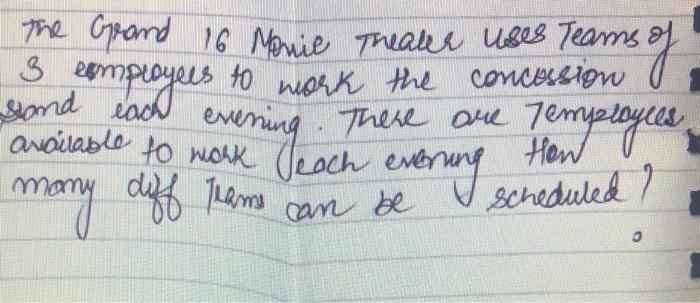 The Grand 16 Movie Theater uses Teams of
3 employees to work the concession
stand each evening. There are 7 employees
available to work each evening How
many diff Teams can be scheduled?